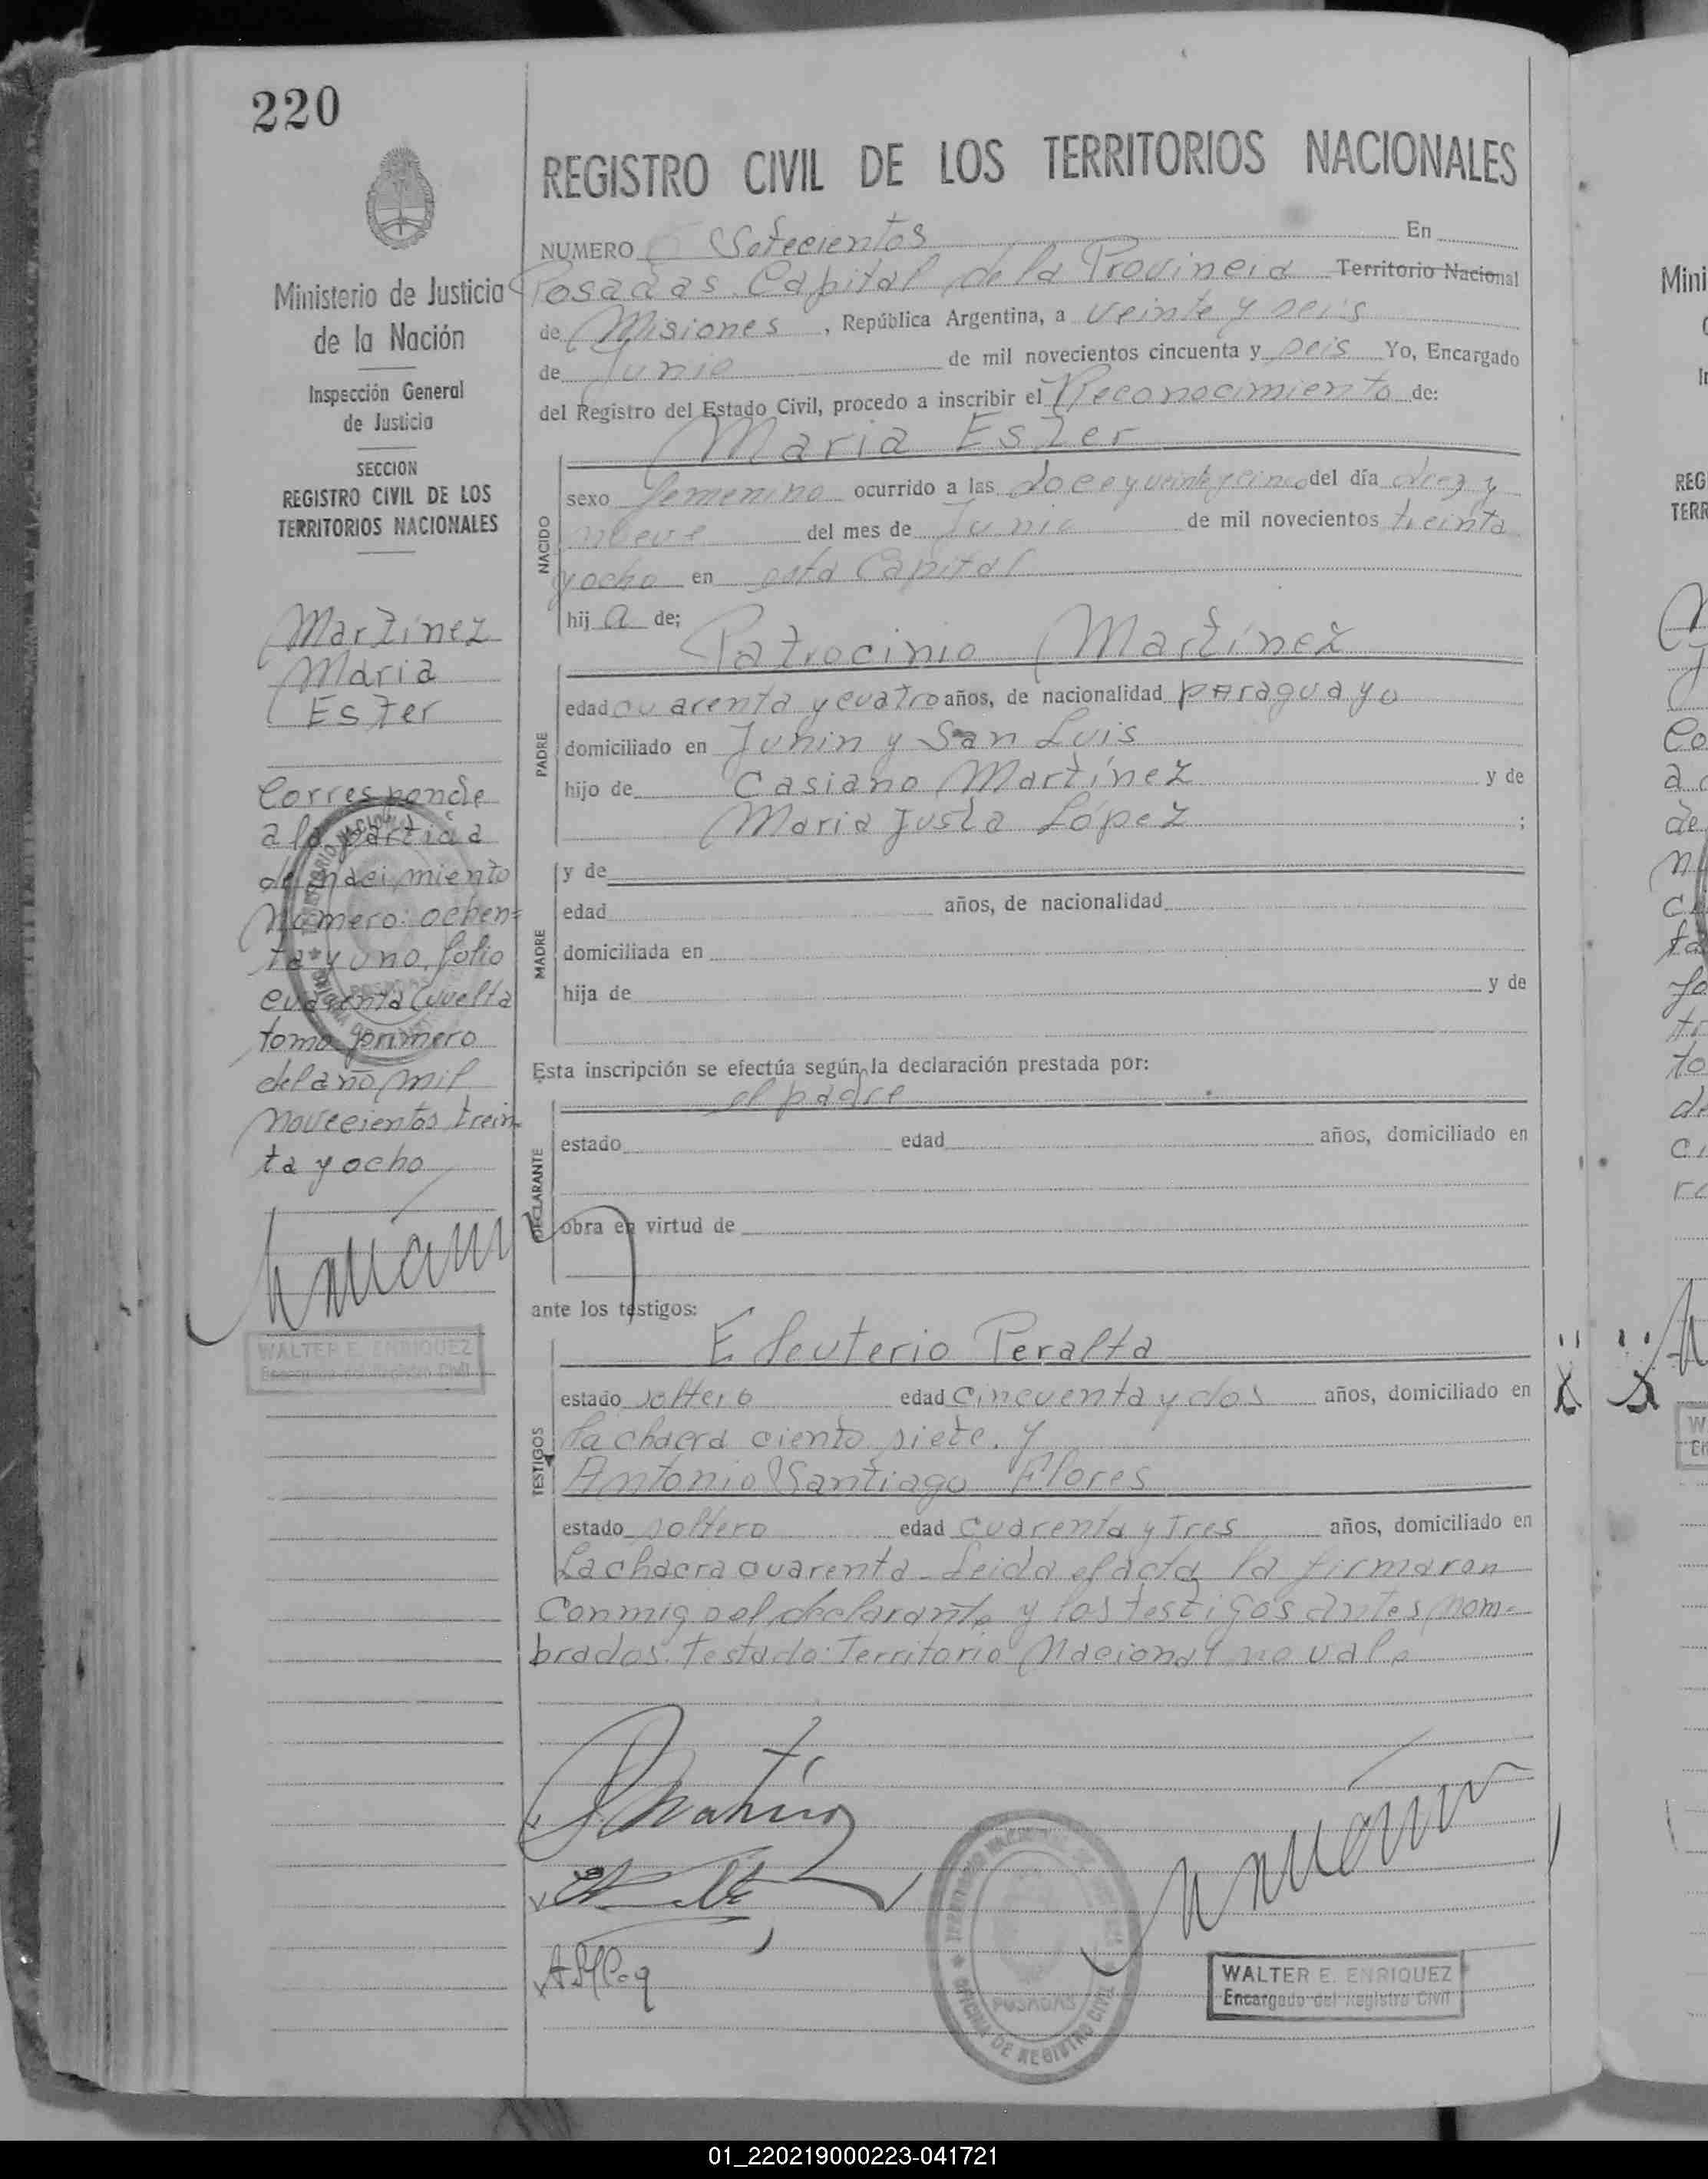 220
REGISTRO CIVIL DE LOS TERRITORIOS NACIONALES
NUMERO Setecientos En
Posadas Capital de la Provincia Territorio Nacional
de Misiones, República Argentina, a veinte y seis
de Junio de mil novecientos cincuenta y seis Yo, Encargado
del Registro del Estado Civil, procedo a inscribir el Reconocimiento de:
Maria Ester
NACIDO
sexo femenino ocurrido a las doce y veinte y cinco del día diez y
nueve del mes de Junio de mil novecientos treinta
y ocho en esta Capital
hij a de;
Patrocinio Martínez
PADRE
edad cuarenta y cuatro años, de nacionalidad paraguayo
domiciliado en Junin y San Luis
hijo de Casiano Martínez y de
Maria Justa López ;
MADRE
y de
edad años, de nacionalidad
domiciliada en
hija de y de
Esta inscripción se efectúa según la declaración prestada por:
el padre
DECLARANTE
estado edad años, domiciliado en
obra en virtud de
ante los testigos:
Eleuterio Peralta
TESTIGOS
estado soltero edad cincuenta y dos años, domiciliado en
la chacra ciento siete. y
Antonio Santiago Flores
estado soltero edad cuarenta y tres años, domiciliado en
La chacra cuarenta - Leida el acta la firmaron
conmigo el declarante y los testigos antes nom-
brados. Testado: Territorio Nacional no vale
POSADAS
OFICINA DE REGISTRO CIVIL
WALTER E. ENRIQUEZ
Encargado del Registro Civil
Ministerio de Justicia
de la Nación
Inspección General
de Justicia
SECCION
REGISTRO CIVIL DE LOS
TERRITORIOS NACIONALES
Martínez
Maria
Ester
Corresponde
a la partida
de nacimiento
número: ochen=
ta y uno, folio
cuarenta vuelta
tomo primero
del año mil
novecientos trein
ta y ocho
WALTER E. ENRIQUEZ
Encargado del Registro Civil
01_220219000223-041721